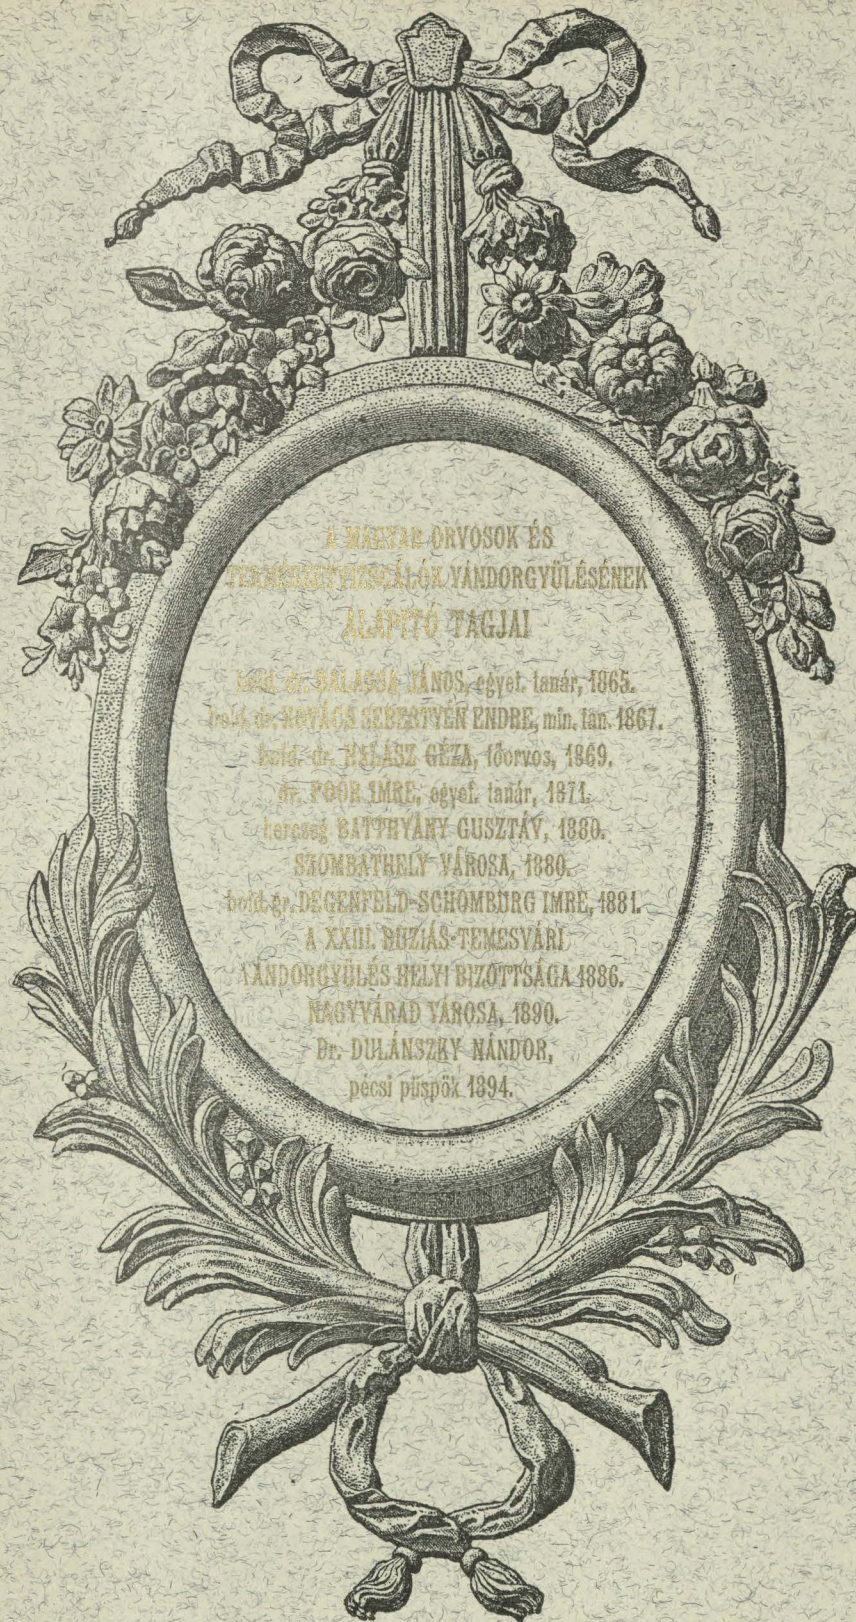 A MAGYAR ORVOSOK ÉS
TERMÉSZETVIZSGÁLÓK VÁNDORGYÜLÉSÉNEK
ALAPÍTÓ TAGJAI
bold. dr. BALASSA JÁNOS, egyet. tanár, 1865.
bold. dr. KOVÁCS SEBESTYÉN ENDRE, min. tan. 1867.
bold. dr. HALÁSZ GÉZA, főorvos, 1869.
dr. POÓR IMRE, egyet. tanár, 1871.
herczeg BATTHYÁNY GUSZTÁV, 1880.
SZOMBATHELY VÁROSA, 1880.
bold. gr. DEGENFELD-SCHOMBURG IMRE, 1881.
A XXIII. BUZIÁS-TEMESVÁRI
VÁNDORGYÜLÉS HELYI BIZOTTSÁGA 1886.
NAGYVÁRAD VÁROSA, 1890.
Dr. DULÁNSZKY NÁNDOR,
pécsi püspök 1894.